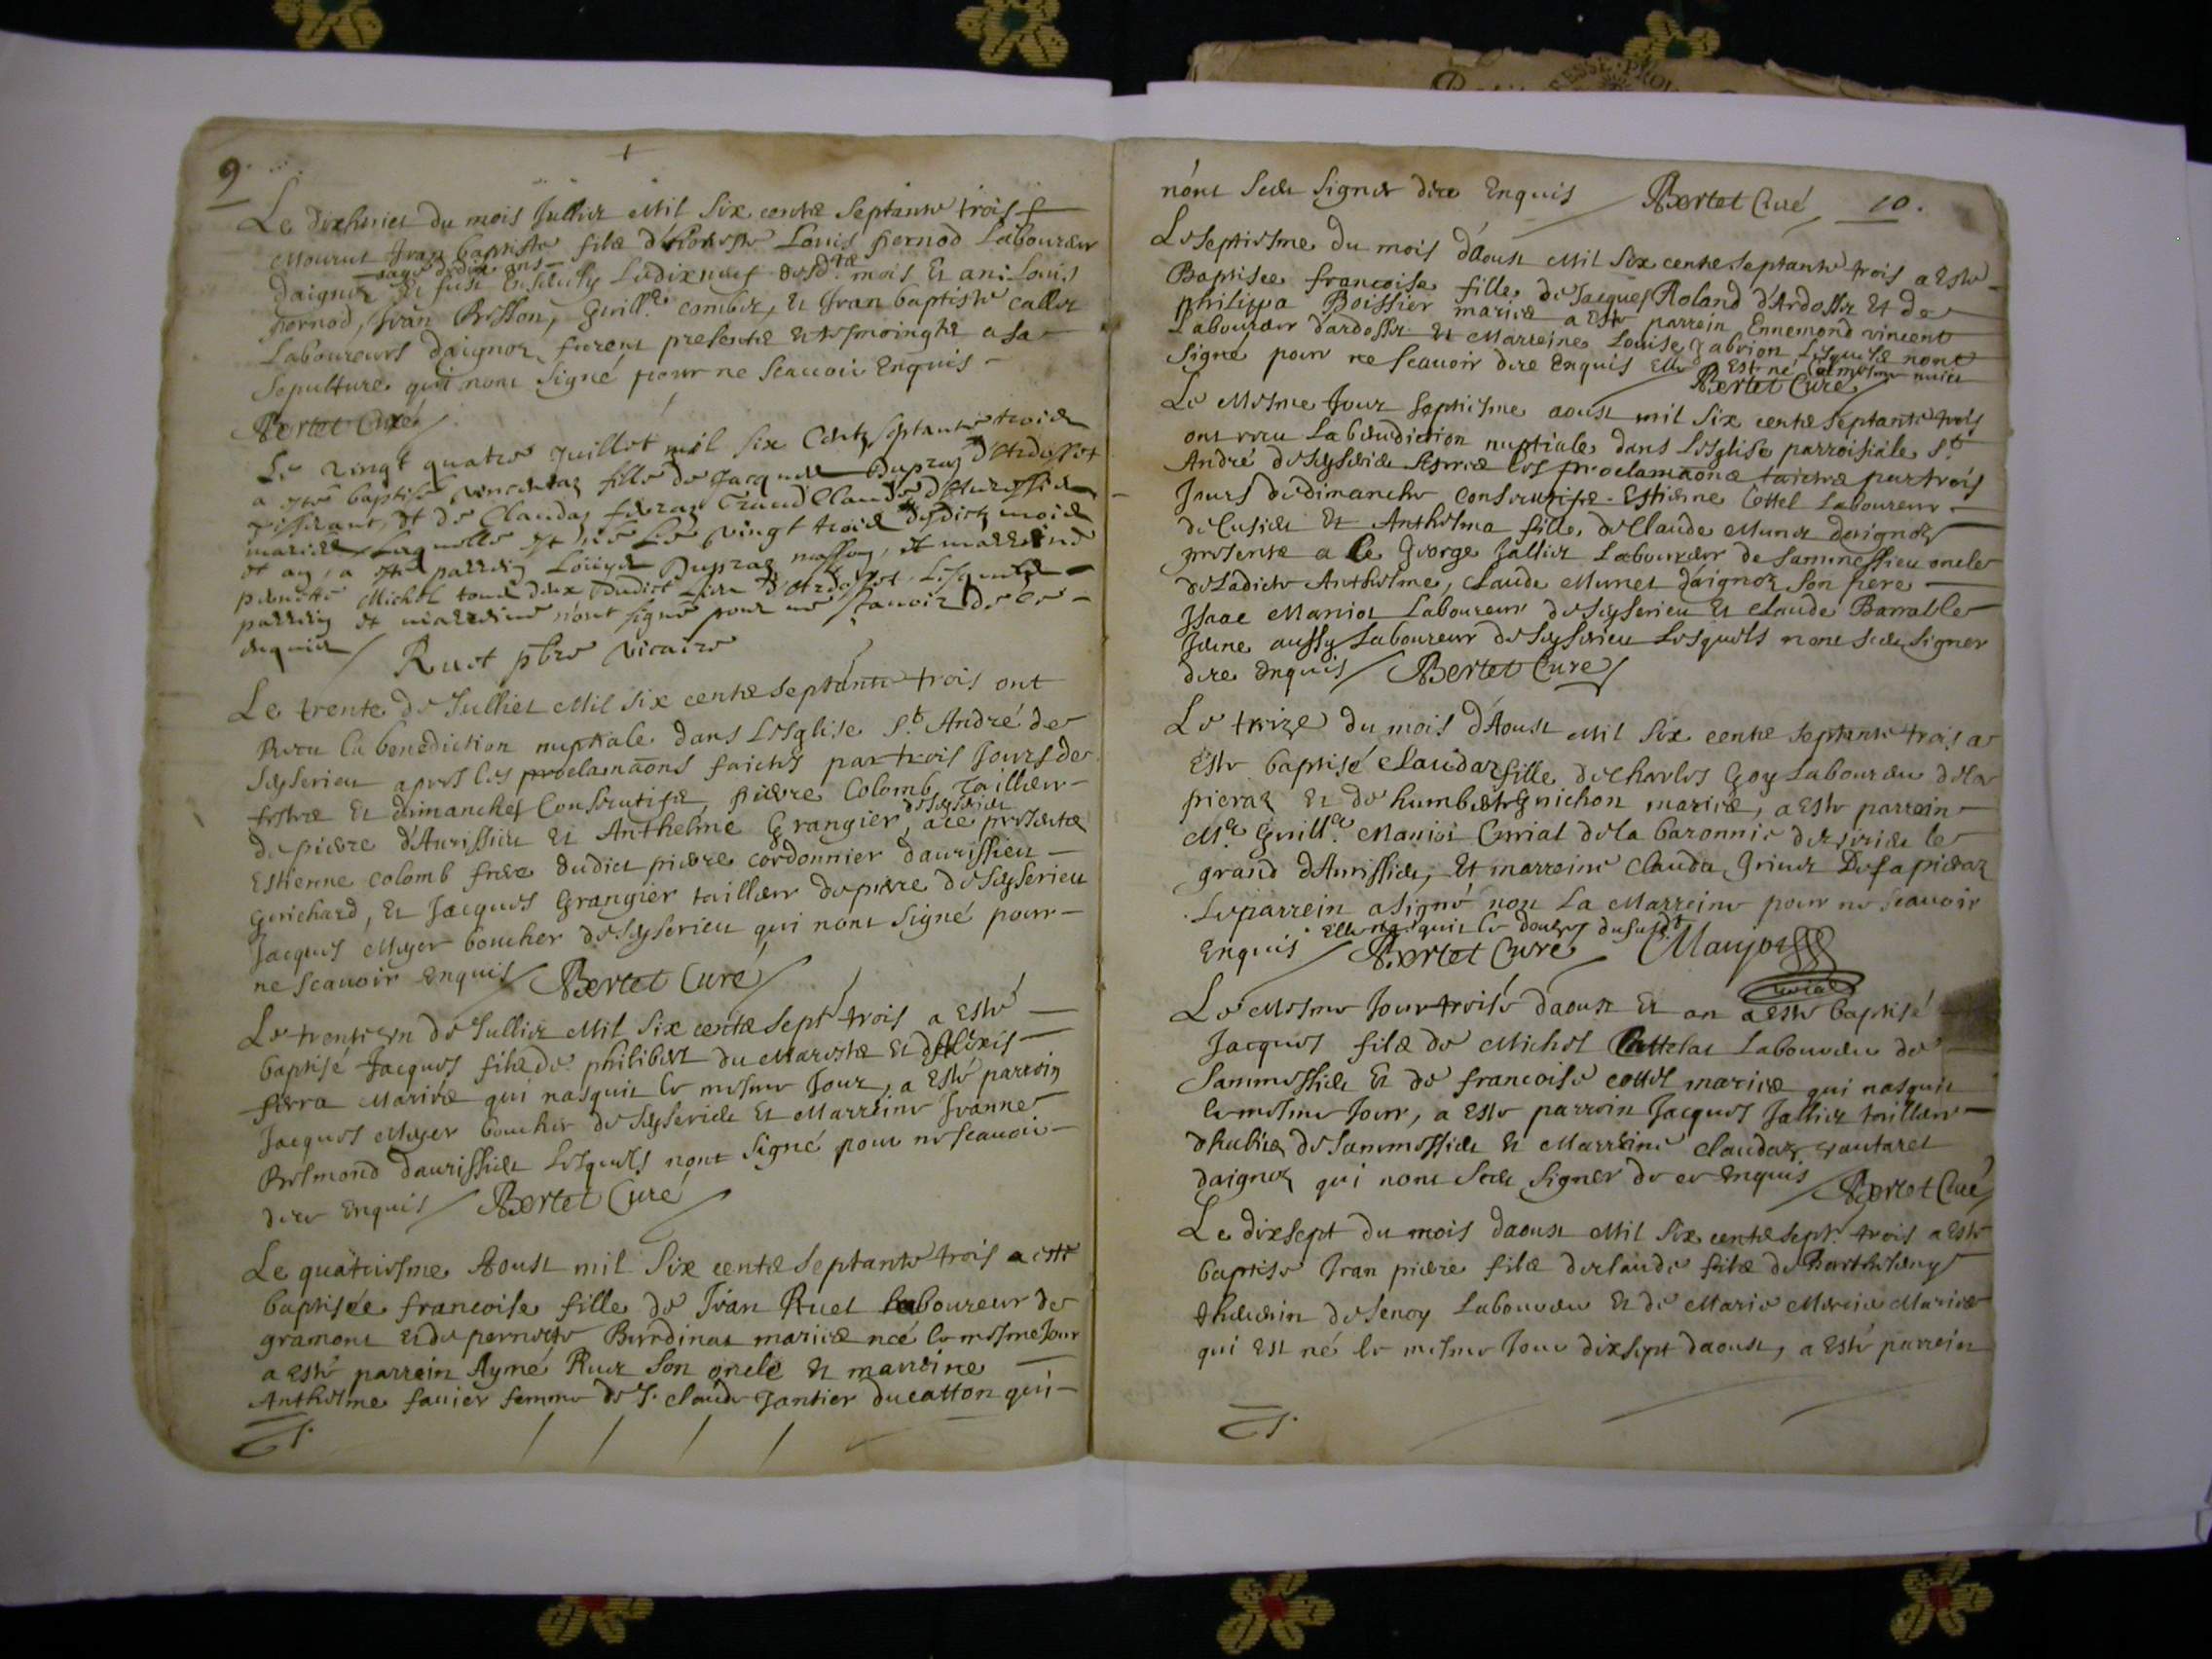 9.
Le dixhuict du mois Jullier Mil Six centz Septante trois
Mourut Jean baptiste filz d'honeste Louis pernod Laboureur
aagé de dix ans
daignoz Et fust Ensevely Ledixneuf dusd. mois Et an: Louis
pernod, Jean Brisson, Guill.e combet, Et Jean baptiste callet
Laboureurs daignoz furent presentz et tesmoingtz a sa
Sepulture qui nont Signé pour ne Scavoir Enquis
Bertet Curé
Le vingt quatre Juillet mil six Centz septante trois
a esté baptisé fille de Jacques Dupraz d'Ardosset
Et de Claudaz feraz d'Aurissieu
mariez Laquelle est née Le vingt trois dudict mois
et an, a esté parrein Louys Dupraz et marreine
pernette Michel tous deux dudict Lieu d'Ardosset Lesquelz
parrein et marreine n'ont signé pour ne scavoir de ce
enquis Ruet pbre vicaire
Le trente de Jullier Mil Six centz Septante trois ont
Receu la benediction nuptiale dans LEsglise St. André de
Seyserieu apres les proclamaons faictes par trois Jours de
festes Et dimanches Consecutifz, pierre Colomb Tailleur
de Seyserieu
de pierre d'Aurissieu Et Anthelme Grangier, a ce presentz
Estienne colomb frere dudict pierre cordonnier daurissieu
Guichard, Et Jacques Grangier tailleur de pierre de Seyserieu
Jacques Meyer boucher de Seyserieu qui nont Signé pour
ne scavoir Enquis Bertet Curé
Le trente Un de Jullier Mil Six centz sept. trois a Esté
baptisé Jacques filz de philibert du Marestz Et
ferra Mariez qui nasquit le mesme Jour, a Esté parrein
Jacques Meyer boucher de Seyserieu Et Marreine Jeanne
Bresmond daurissieu Lesquels nont Signé pour ne scavoir
dire Enquis Bertet Curé
Le quatriesme Aoust mil Six centz Septante trois a esté
baptisée francoise fille de Jean Ruet laboureur de
gramont Et de pernette Burdinat mariez née le mesme Jour
a Esté parrein Aymé Ruet Son oncle Et marreine
Anthelme favier femme de claude Jantier ducatton qui
nont Sceu Signer dire Enquis Bertet Curé 10.
Le Septiesme du mois d'Aoust Mil Six centz Septante trois a Esté
Baptisée francoise fille de Jacques Roland d'Ardosset Et de
philippa Boissier mariez a Esté parrein Ennemond vincent
Laboureur d'ardosset Et Marreine Louise Lesquelz nont
Signé pour ne Scavoir dire Enquis Elle Est née
Bertet Curé
Le Mesme Jour Septiesme aoust mil Six centz Septante trois
ont receu La benediction nuptiale dans LEsglise parroisiale St.
André de Seyserieu Apres les proclamaons faictes par trois
Jours de dimanche Consecutifz Estienne Cottel Laboureur
de Et Anthelma fille de Claude Munet daignoz
presentz a Ce George Jallier Laboureur de Sammessieu oncle
de Ladicte Anthelme, Claude Munet daignoz Son pere
Isaac Maniot Laboureur de Seyserieu Et claude Barrable
aussy Laboureur de Seyserieu Lesquels nont Sceu Signer
dire Enquis Bertet Curé
Le treize du mois d'Aoust Mil Six centz septante trois a
Esté baptisé Claudaz fille de Charles Goy Laboureur de la
pieraz Et de humberte Guichon mariez, a Esté parrein
Me. Guill.e Maniot Curial de la baronnie le
grand d'Aurissieu, Et marreine Clauda De la pieraz
Le parrein a Signé non La Marreine pour ne Scavoir
Elle nasquit le douze dususdt
Enquis Bertet Curé Manjot
curial
Le Mesme Jour treisé daoust Et an a Esté baptisé
Jacques filz de Michel Laboureur de
Sammessieu Et de francoise cottel mariez qui nasquit
le mesme Jour, a Esté parrein Jacques Jallier tailleur
dhabitz de Sammessieu Et Marreine claudaz
daignoz qui nont Sceu Signer de ce Enquis Bertet Curé
Le dixsept du mois daoust Mil Six centz sept. trois a Esté
baptisé Jean pierre filz de claude filz de Barthelemy
de Senoy Laboureur Et de Marie Mariez
qui Est né le mesme Jour dixsept daoust, a Esté parrein